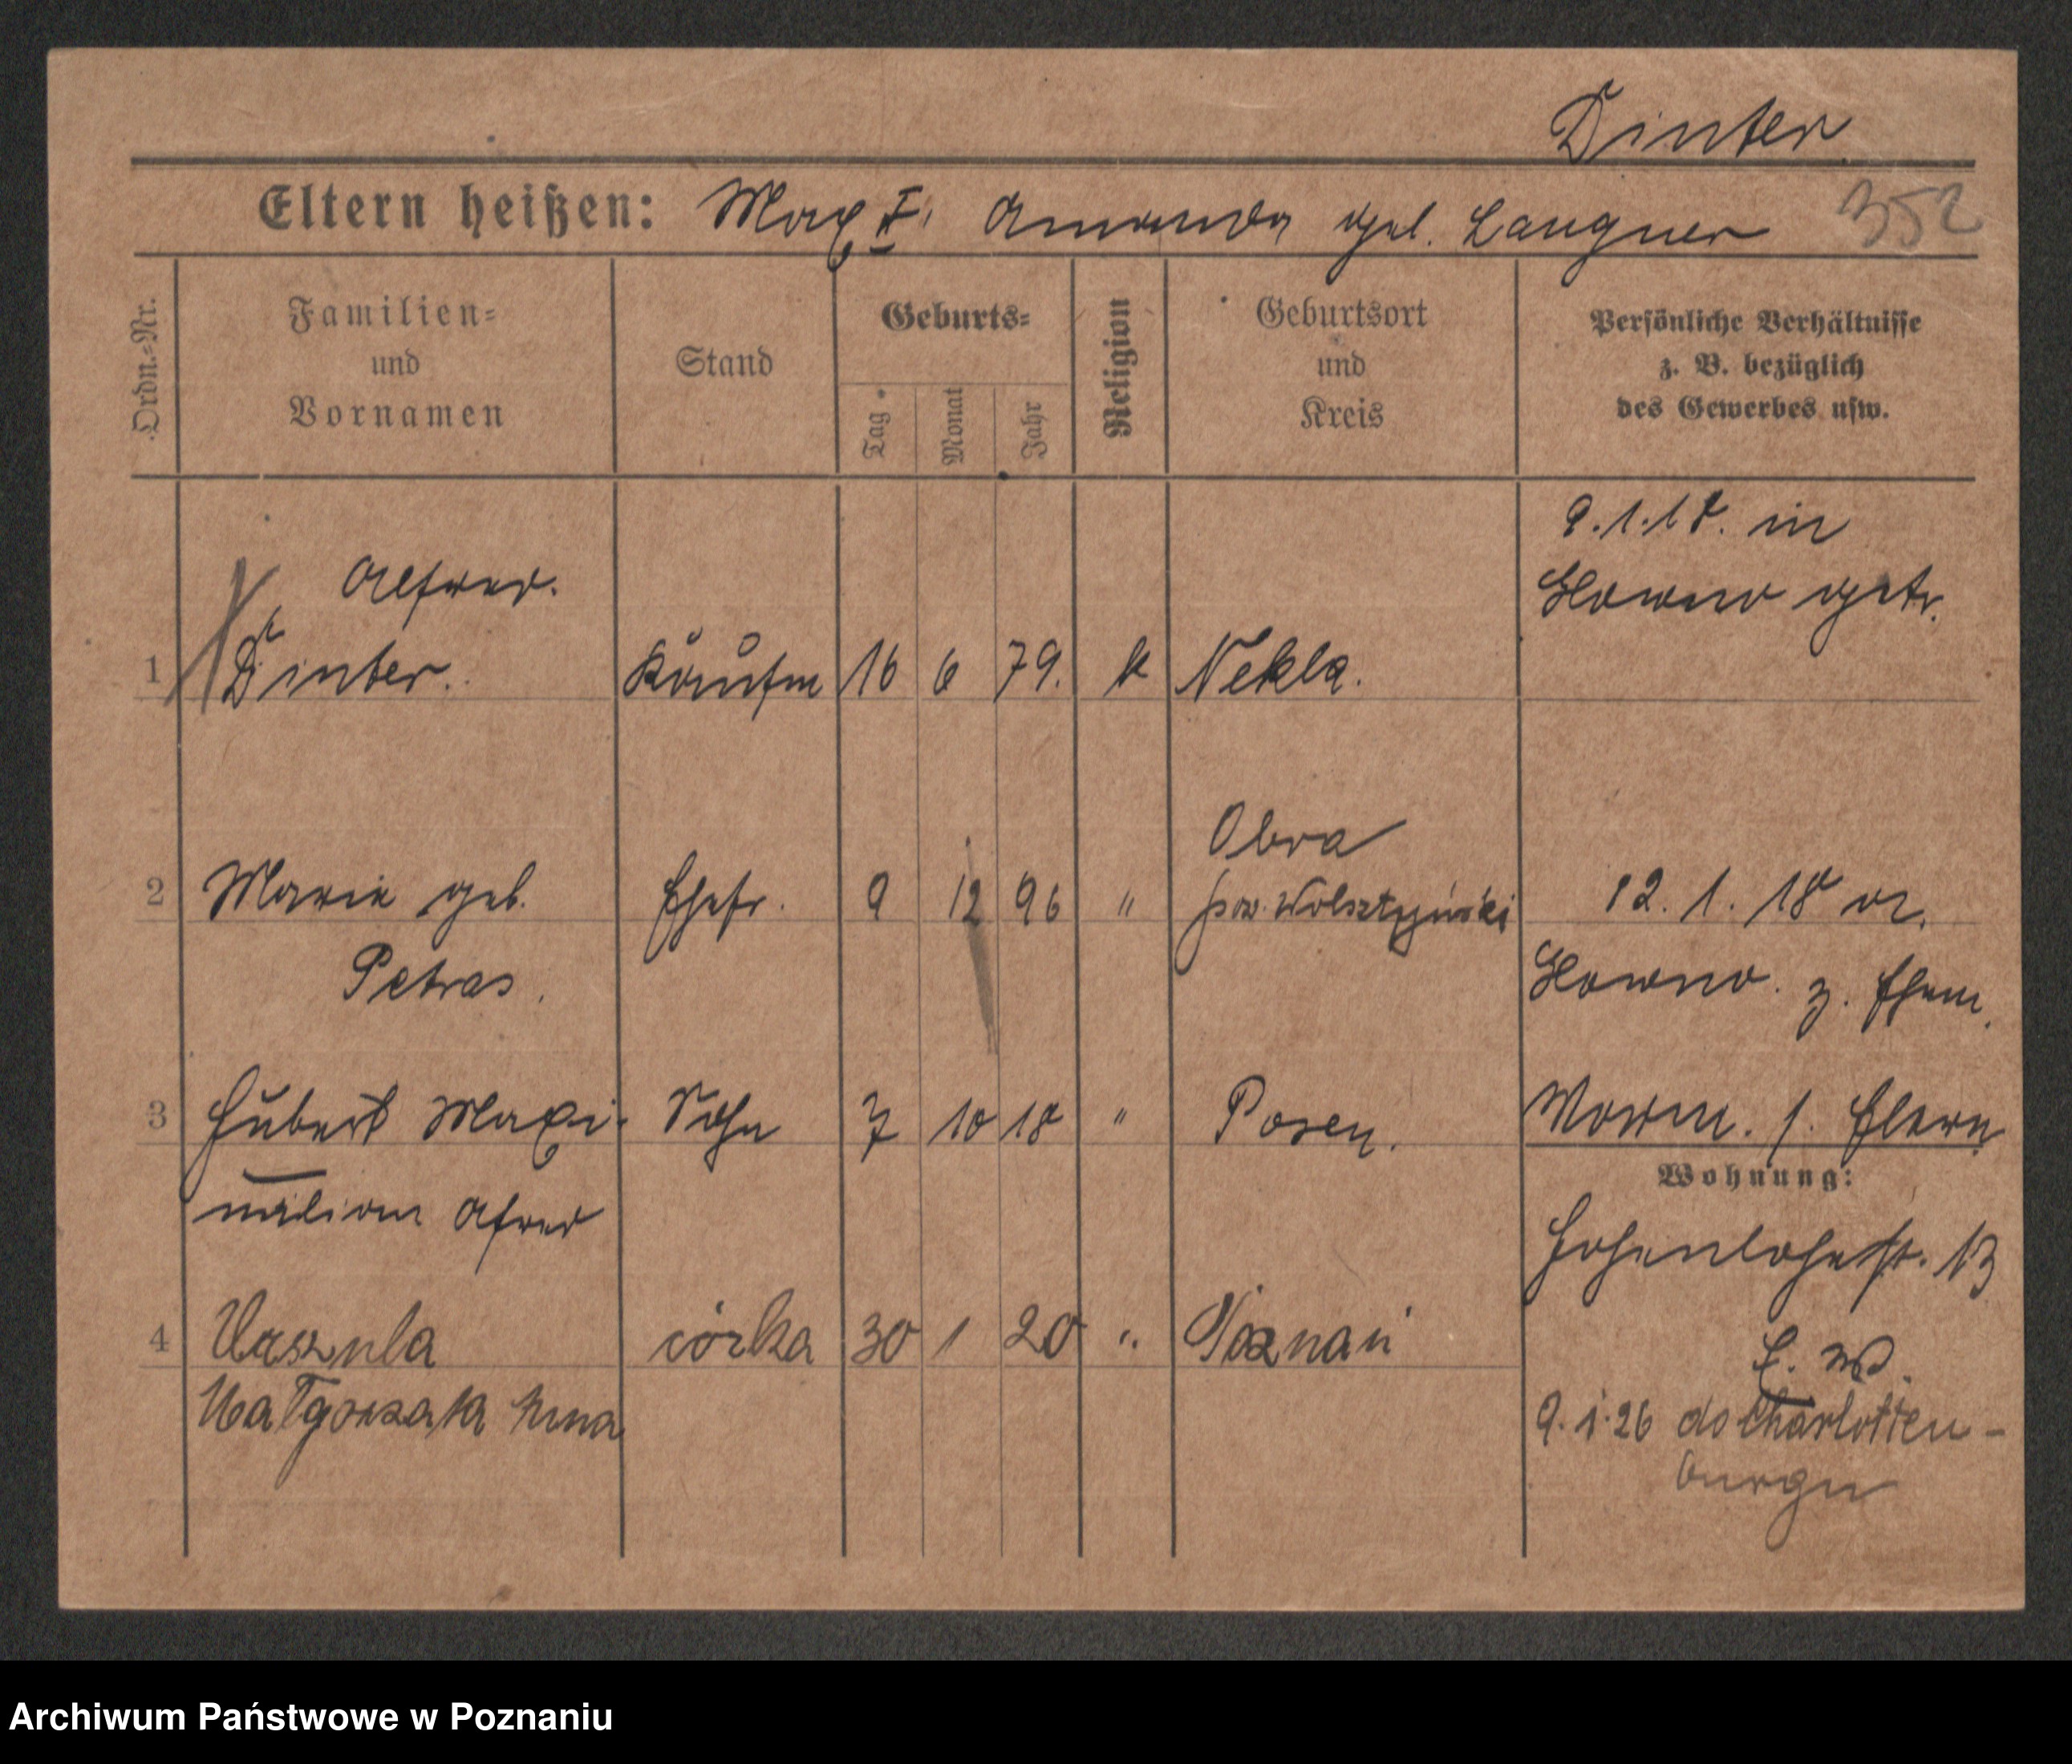 Dinter
Eltern heißen: Max I, Amanda geb. Langner 352
Ordn.=Nr.
Familien=
und
Vornamen
Stand
Geburts=
Tag
Monat
Jahr
Religion
Geburtsort
und
Kreis
Persönliche Verhältnisse
z. B. bezüglich
des Gewerbes usw.
9.1.18. in
Alfred.
Glowno getr.
1 Dinter. Kaufm 16 6 79. k Nekla.
Obra
2 Marie geb. Ehefr. 9 12 96 " pow. Wolsztyński 12. 1. 18 v.
Petras.
Glowno. z. Ehem.
3 Hubert Maxi- Sohn 7 10 18 " Posen. Wohn. b. Eltern
Wohnung:
milian Alfred
Hohenlohestr. 13
4 Urszula córka 30 1 20 " Poznań
Małgorzata Anna
9.1.26 do Charlotten-
burgu
Archiwum Państwowe w Poznaniu